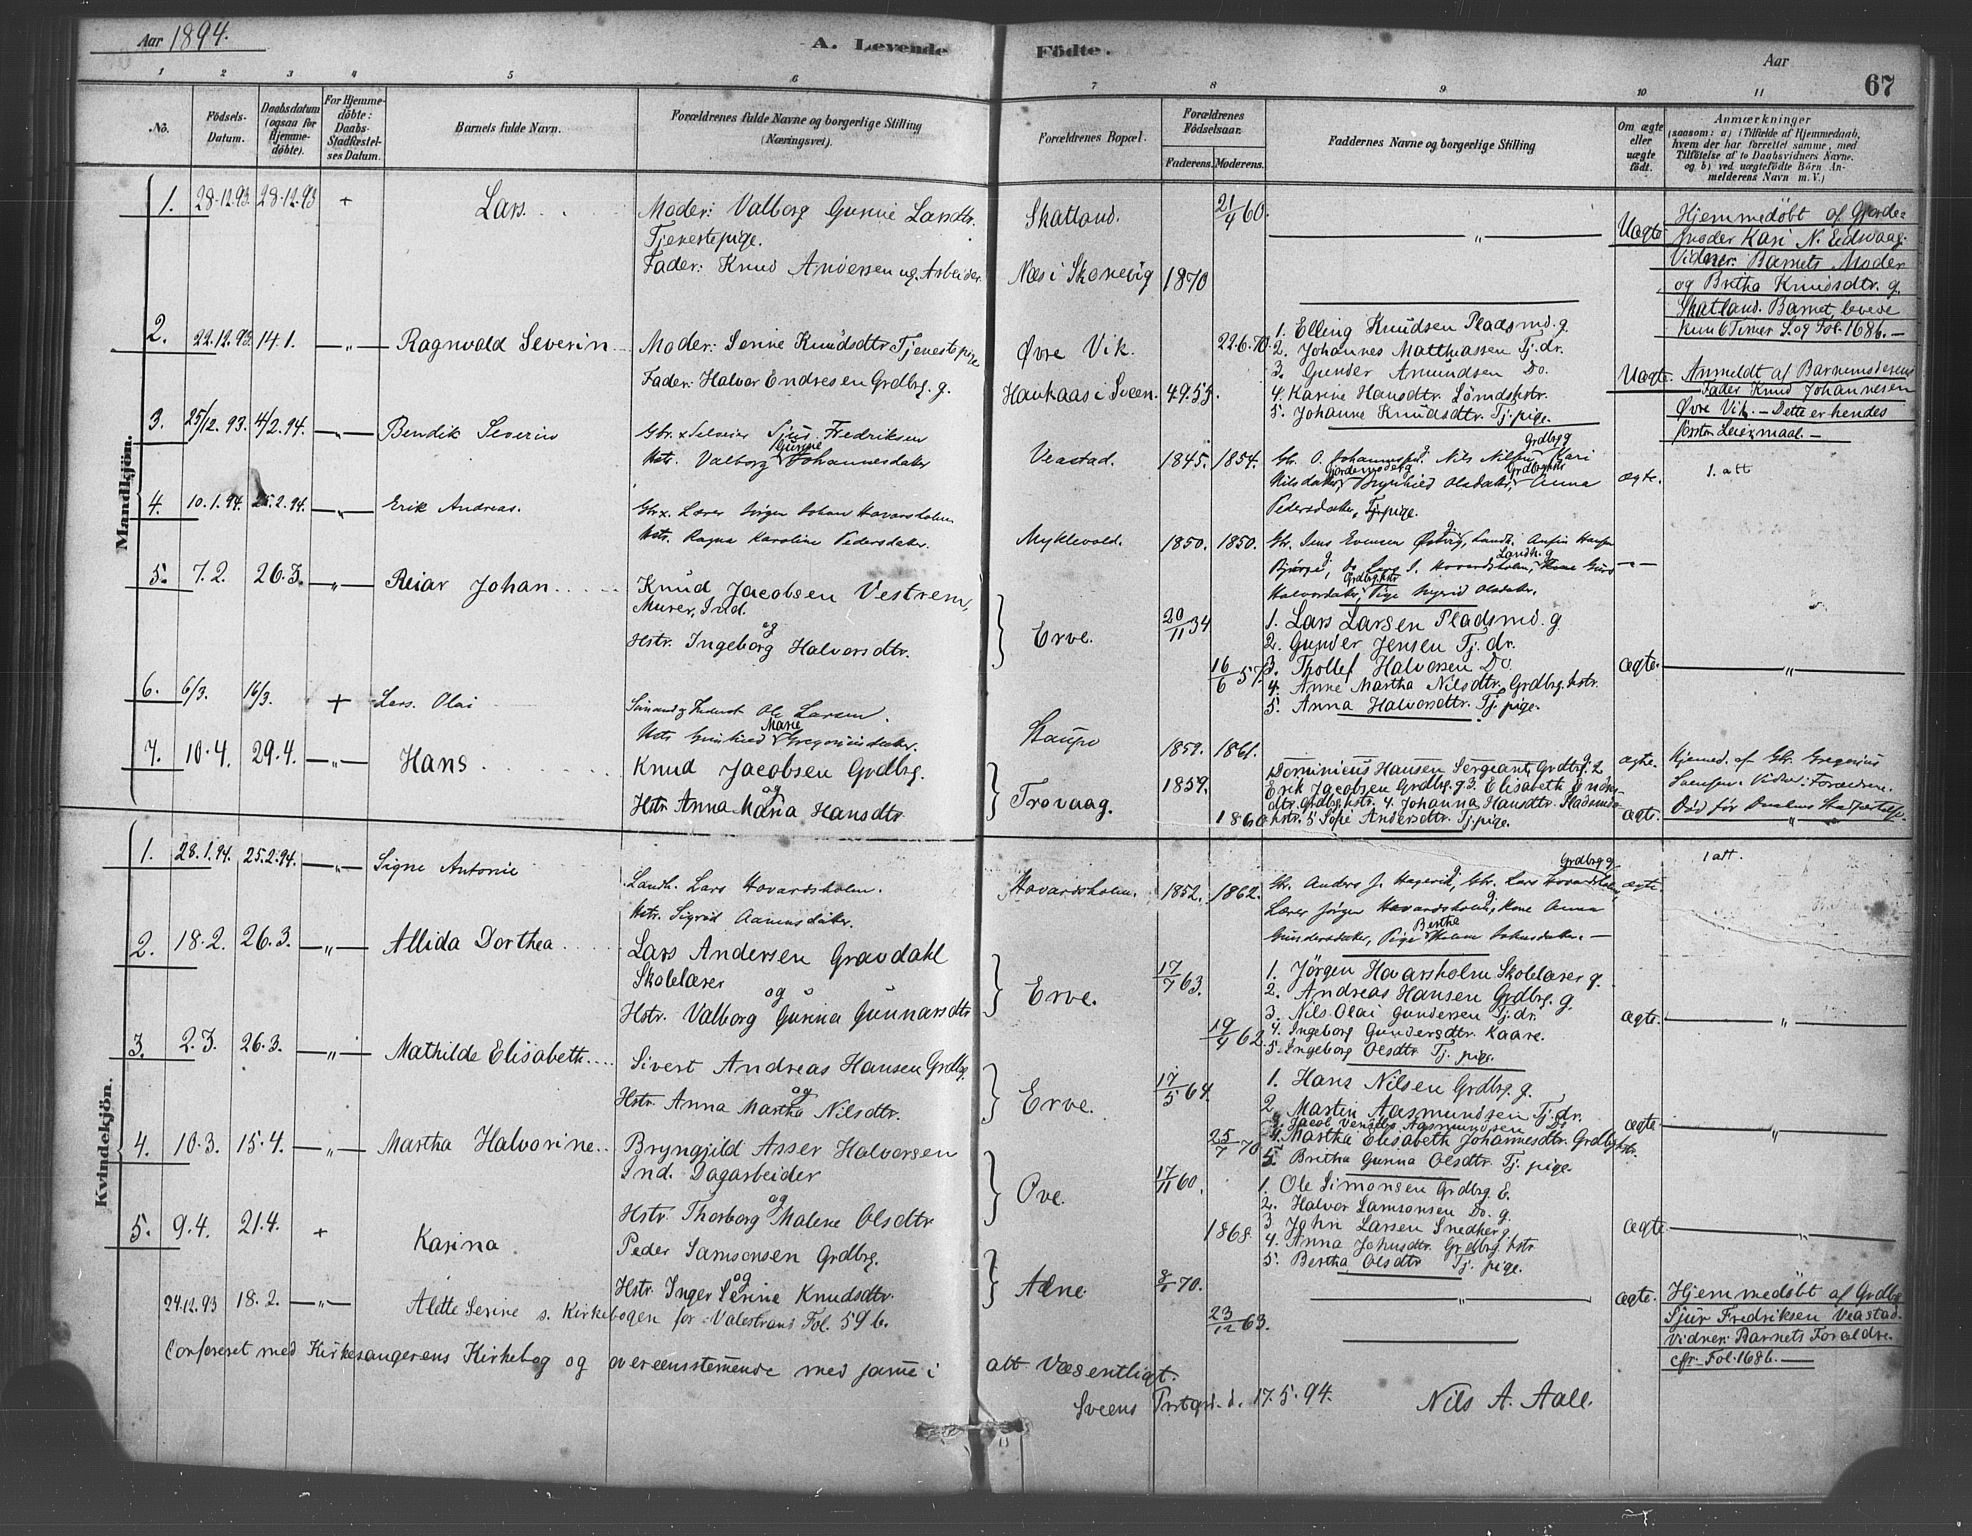 Aar 1894.
A. Levende Födte.
Aar
67
1 2 3 4 5 6 7 8 9 10 11
No.
Födsels-Datum.
Daabsdatum (ogsaa for Hjemme-döbte).
For Hjemme-döbte: Daabs-Stadfæstel-ses Datum.
Barnets fulde Navn.
Forældrenes fulde Navne og borgerlige Stilling (Næringsvei).
Forældrenes Bopæl.
Forældrenes Födselsaar.
Faderens. Moderens.
Faddernes Navne og borgerlige Stilling
Om ægte eller uægte födt.
Anmærkninger
(saasom: a) i Tilfælde af Hjemmedaab, hvem der har forrettet samme, med Tilföielse af to Daabsvidners Navne. og b) ved uægtefödte Börn An-melderens Navn m. V.)
Mandkjön.
1. 28.12.93. 28.12.93 + Lars.
Moder: Valborg Gurine Larsdtr.
Tjenestepige.
Fader: Knud Andersen ug. Arbeider.
Skatland. 21/4 60.
Næs i Skonevig 1870
Uægte
Hjemmedöbt af Gjorde-
moder Kari N. Eidsvaag.
Vidner: Barnets Moder
og Britha Knudsdtr. g.
Skatland. Barnet levede
kun 6 Timer S. og Fol. 168b. —
2. 22.12.93. 14.1. —"— Ragnvald Severin
Moder: Serine Knudsdtr Tjenestepige
Fader: Halvor Endresen Grdbrg. g.
Øvre Vik. 22.6.70.
Haukaas i Sveen. 49.55.
1. Elling Knudsen Pladsmd. g
2. Johannes Matthiassen Tj. dr.
3. Gunder Amundsen Do.
4. Karine Hansdtr.
5. Johanne Knudsdtr. Tj. pige.
Uægte.
Anmeldt af Barnemoderens
Fader Knud Johannesen
Øvre Vik. — Dette er hendes
förste Leiermaal. —
3. 25/12. 93. 4/2. 94. —"— Bendik Severin
Gbr. x Selveier Sjur Fredriksen
Hstr. Valborg Gurine Johannesdatter
Veastad. 1845. 1854.
Nils Nilsen Grdbrg g Kari
Nilsdatter, Gjordemoder g Brynhild Olsdatter, Grdbrghstr Anna
Pedersdatter, Tj. pige.
ægte. 1. att
4. 10.1.94. 25.2.94. —"— Erik Andreas.
Gbr. Lærer Jörgen Johan Havarsholm
Hstr. Ragna Karoline Pedersdatter.
Myklevold. 1850. 1850.
Gbr. Jens Evensen Østvig,
Landh. g
Halvorsdatter, Grdbrghstr Pige Sigrid Olsdatter.
5. 7.2. 26.3. —"— Reiar Johan
Knud Jacobsen Vestrem,
Murer, Ind.
og
Hstr. Ingeborg Halvorsdtr.
Erve. 20/11 34
16/6 57.
1. Lars Larsen Pladsmd. g
2. Gunder Jensen Tj. dr.
3. Thollef Halvorsen Do.
4. Anne Martha Nilsdtr. Grdbrg. hstr.
5. Anna Halvorsdtr. Tj. pige.
ægte. —"—
6. 6/3. 16/3. + Lars Olai
Ole Larsen.
Hstr Gunhild Marie Gregoriusdatter.
Staupe 1859. 1861.
ægte.
Hjemmed. af Gbr. Gregorius
Svensen. Vidner: Forældrene.
Död för Daabens Stadfæstelse.
7. 10.4. 29.4. —"— Hans
Knud Jacobsen Grdbrg.
og
Hstr. Anna Maria Hansdtr
Trovaag. 1859.
1860
Dominicus Hansen Sergeant, Grdbrg. 2
Erik Jacobsen Grdbrg. g 3. Elisabeth
dtr. Grdbrg. hstr. 4. Johanna Hansdtr. Pladsmds
hstr. 5 Sofie Andersdtr. Tj. pige.
ægte. —"—
Kvindekjön.
1. 28.1.94. 25.2.94. —"— Signe Antonie
Landh. Lars Havardsholm.
Hstr. Sigrid Aamundsdatter.
Havardsholm. 1852. 1862.
Gbr. Anders J. Hagevik, Gbr. Lars Havardsholm, Grdbrg g
Lærer Jörgen Havardsholm, Kone Anna
Gundersdatter, Pige Berthe Johnsdatter. —
ægte 1 att.
2. 18.2. 26.3. —"— Allida Dorthea
Lars Andersen Gravdahl
Skolelærer
og
Hstr. Valborg Gurina Gunnarsdtr
Erve. 17/7 63.
19/4 62.
1. Jörgen Havarsholm Skolelærer g.
2. Andreas Hansen Grdbrg. g
3. Nils Olai Gundersen Tj. dr.
4. Ingeborg Gundersdtr. Kaare.
5. Ingeborg Olsdtr. Tj. pige.
ægte. —"—
3. 2.3. 26.3. —"— Mathilde Elisabeth
Sivert Andreas Hansen Grdbg.
og
Hstr. Anna Martha Nilsdtr.
Erve. 17/5 64.
25/7 70
1. Hans Nilsen Grdbrg. g.
2. Martin Aasmundsen Tj. dr.
3. Jacob Aasmundsen Do
4. Martha Elisabeth Johannesdtr. Grdbghstr.
5. Britha Gurina Olsdtr. Tj. pige.
ægte. —"—
4. 10.3. 15.4. —"— Martha Halvorine
Bryngjild Asser Halvorsen
Ind. Dagarbeider
og
Hstr. Thorborg Malene Olsdtr
Ove. 17/11 60.
1868.
1. Ole Simonsen Grdbrg. E.
2. Halvor Samsonsen Do. g.
3. John Larsen Snedker g.
4. Anna Johnsdtr. Grdbrg. hstr
5. Bertha Olsdtr Tj. pige.
ægte. —"—
5. 9.4. 21.4. + Karina
Peder Samsonsen Grdbrg.
og
Hstr. Inger Serine Knudsdtr.
Adne. 70.
23/12 63.
—"—
ægte.
Hjemmedöbt af Grdbrg
Sjur Fredriksen Veastad.
Vidner: Barnets Forældre.
cfr. Fol. 168b. —
24.12.93 18.2. —"— Alette Serine s. Kirkebogen for Valestrand Fol. 59 b.
Confereret med Kirkesangerens Kirkebog og overeensstemmende med samme i alt Væsentligt.
Sveens Prstgrd. d. 17.5.94. Nils A. Aall.